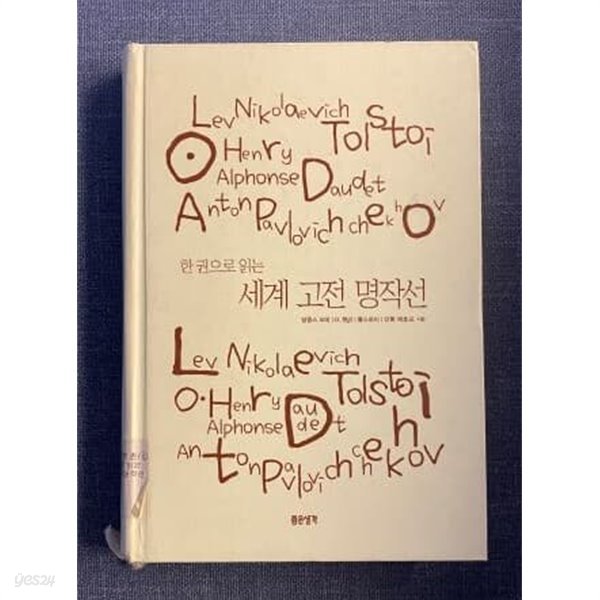 Lev Nikolaevich Tolstoi
O Henry
Alphonse Daudet
Anton Pavlovich chekhov
한 권으로 읽는
세계 고전 명작선
알퐁스 도데 | O. 헨리 | 톨스토이 | 안톤 체호프 지음
Lev Nikolaevich Tolstoi
O·Henry
Alphonse Daudet
Anton Pavlovich chehkov
좋은생각
yes24